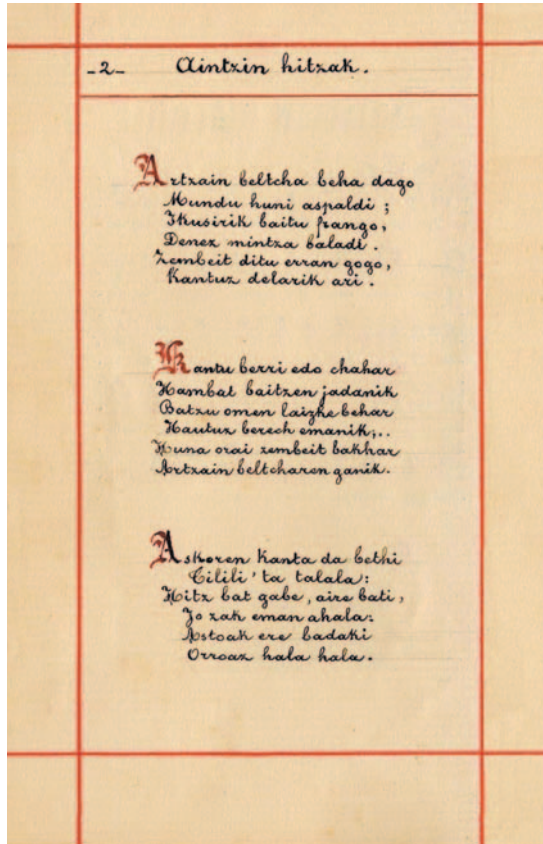 -2- Aintzin hitzak.
Artzain beltcha beha dago
Mundu huni aspaldi ;
Ikusirik baitu frango,
Denez mintza baladi.
Zembeit ditu erran gogo,
Kantuz delarik ari.
Kantu berri edo chahar
Hambat baitzen jadanik
Batzu omen laizke behar
Hautuz berech emanik;..
Huna orai zembeit bakhar
Artzain beltcharen ganik.
Askoren kanta da bethi
Tilili 'ta talala:
Hitz bat gabe, aire bati,
Jo zak eman ahala:
Astoak ere badaki
Orroaz hala hala.